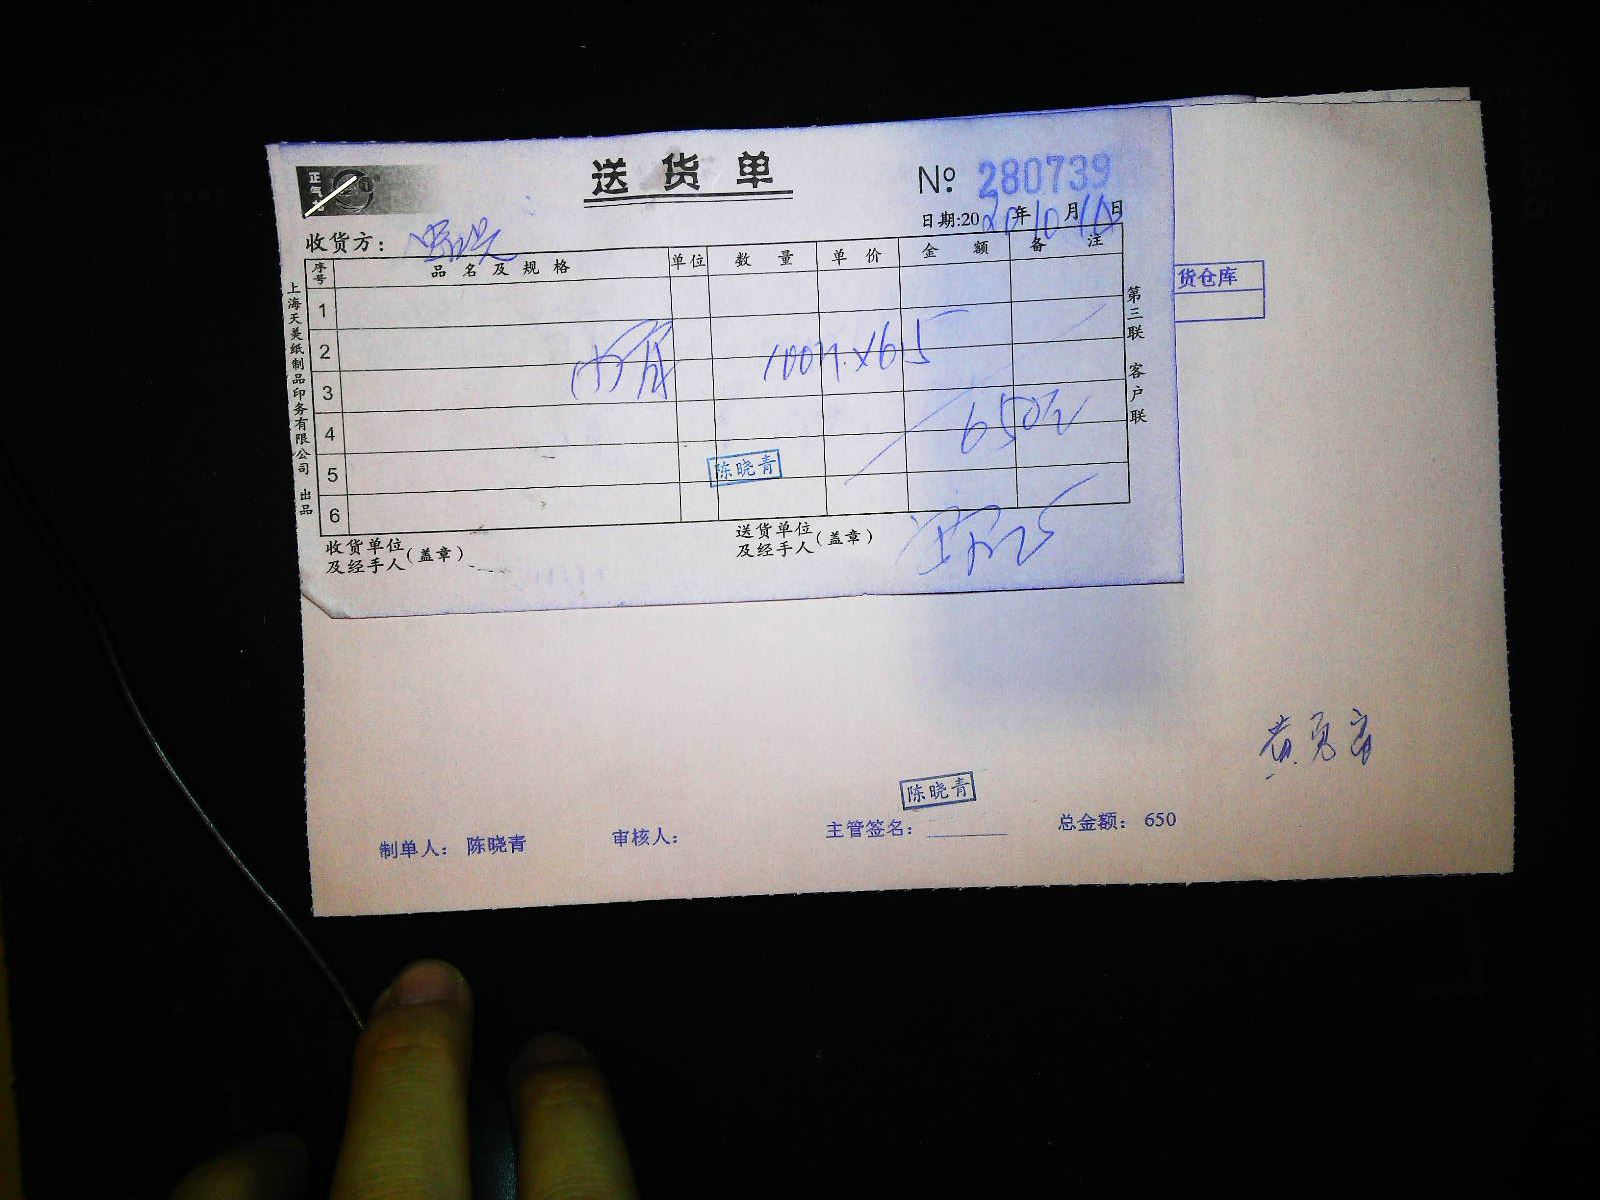 正气
送货单
Nº 280739
日期:2020年10月10日
收货方:
序号 品名及规格 单位 数量 单价 金额 备注
1
2
3
4
5
6
100斤×6.5
650元
陈晓青
收货单位及经手人(盖章)
送货单位及经手人(盖章)
上海天美纸制品印务有限公司 出品
第三联 客户联
货仓库
陈晓青
制单人: 陈晓青 审核人: 主管签名: 总金额: 650